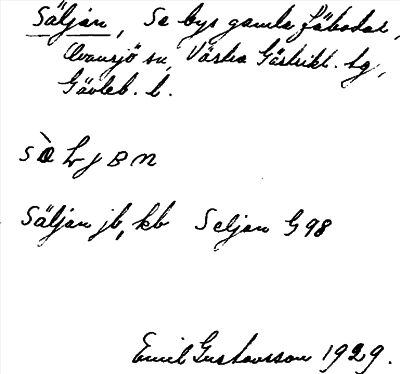 Säljan, Se bys gamla fäbodar,
Ovansjö sn, Västra Gästrikl. tg,
Gävleb. l.
Säljan jb, kb Seljan G98
Emil Gustavsson 1929.